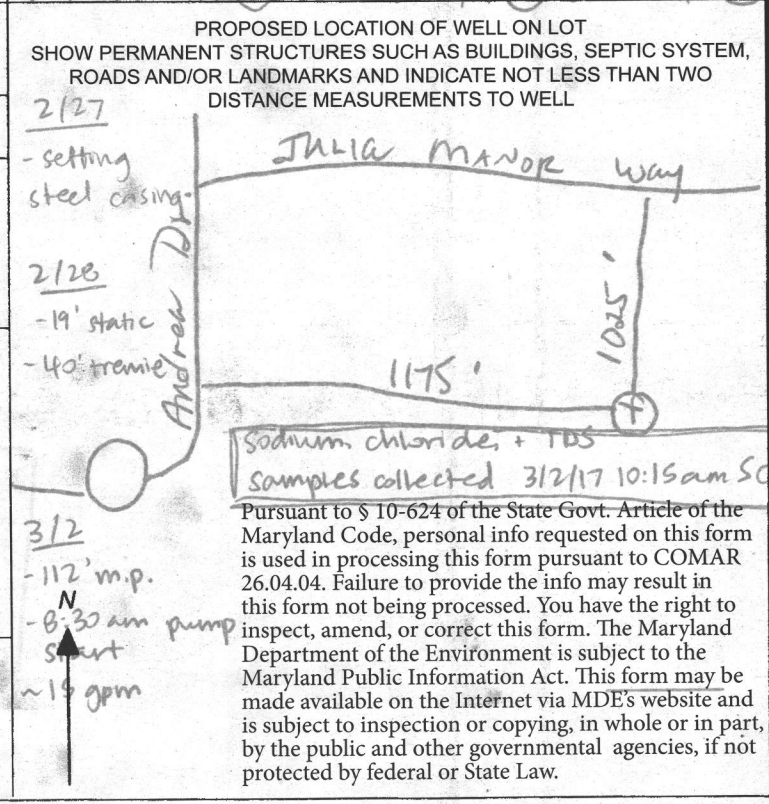 PROPOSED LOCATION OF WELL ON LOT
SHOW PERMANENT STRUCTURES SUCH AS BUILDINGS, SEPTIC SYSTEM,
ROADS AND/OR LANDMARKS AND INDICATE NOT LESS THAN TWO
DISTANCE MEASUREMENTS TO WELL
2/27
- setting
steel casing.
JULIA MANOR Way
Andrew Dr
2/28
- 19' static
- 40' tremie
1025'
1175'
sodium, chloride, + TDS
samples collected 3/2/17 10:15am SC
3/2
- 112' m.p.
N
- 8:30 am pump
start
~ 15 gpm
Pursuant to § 10-624 of the State Govt. Article of the
Maryland Code, personal info requested on this form
is used in processing this form pursuant to COMAR
26.04.04. Failure to provide the info may result in
this form not being processed. You have the right to
inspect, amend, or correct this form. The Maryland
Department of the Environment is subject to the
Maryland Public Information Act. This form may be
made available on the Internet via MDE's website and
is subject to inspection or copying, in whole or in part,
by the public and other governmental agencies, if not
protected by federal or State Law.